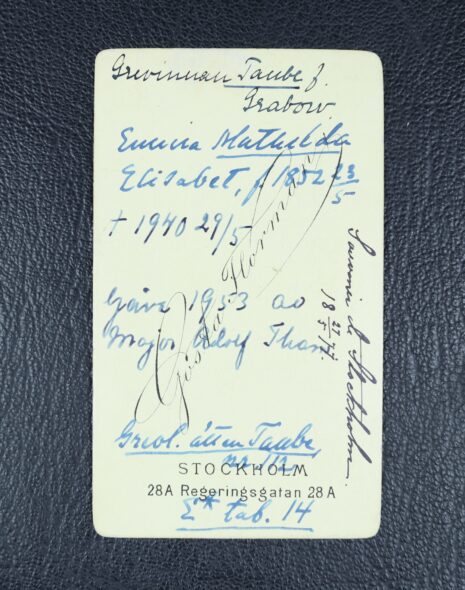 Grevinnan Taube f.
Grabow.
Emma Mathilda
Elisabet, f. 1852 23/5
† 1940 29/5
Gåva 1953 av
Major Adolf Tham.
Gösta Florman
Souvenir de Stockholm.
18 27/5 77.
Grevl. ätten Taube,
nr 112
STOCKHOLM
28A Regeringsgatan 28A
tab. 14